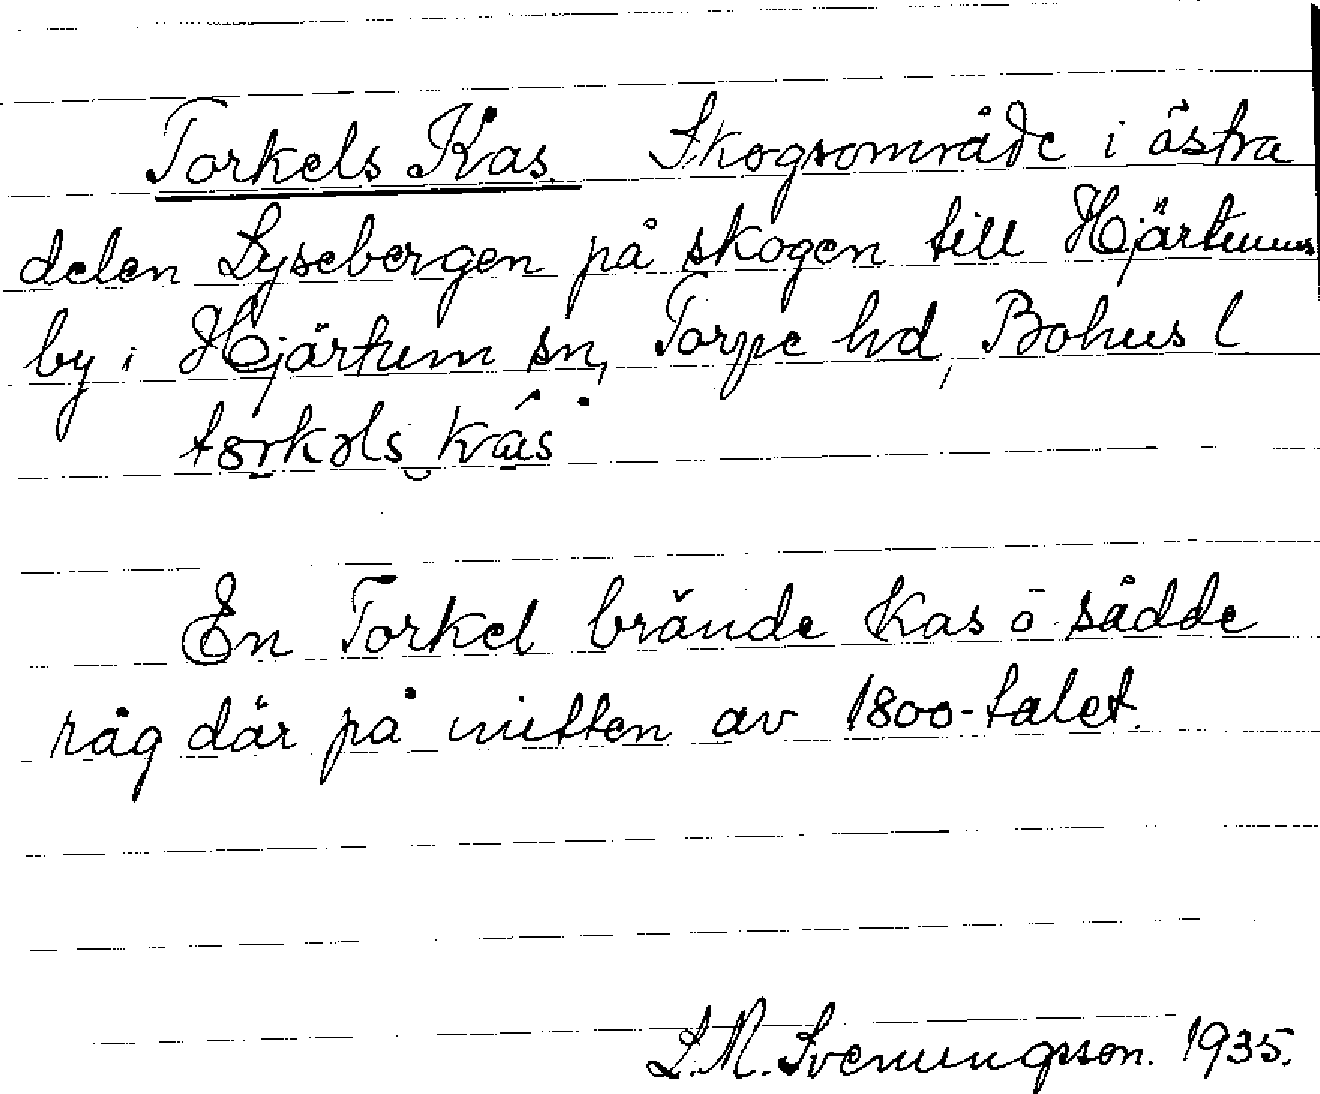 Torkels Kas. Skogsområde i östra
delen Lysebergen på skogen till Hjärtums
by i Hjärtum sn, Torpe hd, Bohus l
En Torkel brände Kas o sådde
råg där på mitten av 1800-talet.
S.M. Svenungsson. 1935.